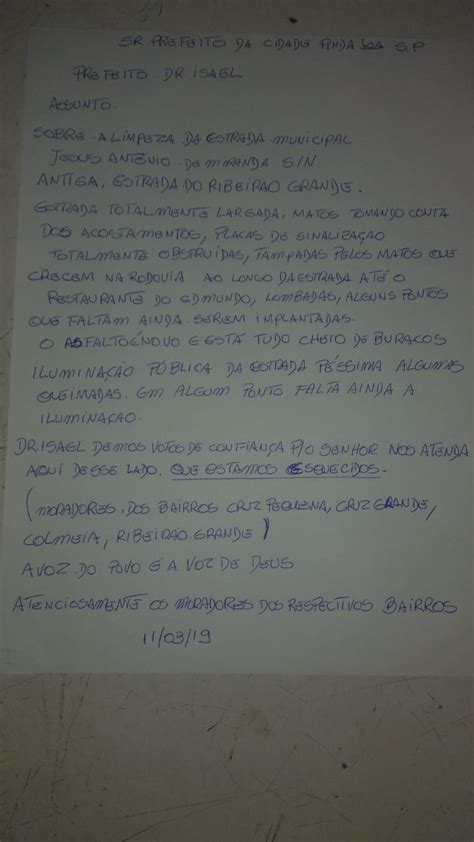 SR PREFEITO DA CIDADE PINDA S.P
PREFEITO DR ISAEL
ASSUNTO.
SOBRE A LIMPEZA DA ESTRADA MUNICIPAL
JESUS ANTÔNIO DE MIRANDA S/N
ANTIGA, ESTRADA DO RIBEIRAO GRANDE.
ESTRADA TOTALMENTE LARGADA, MATOS TOMANDO CONTA
DOS ACOSTAMENTOS, PLACAS DE SINALIZAÇAO
TOTALMENTE OBSTRUIDAS, TAMPADAS PELOS MATOS QUE
CRECEM NA RODOVIA AO LONGO DA ESTRADA ATÉ O
RESTAURANTE DO EDMUNDO, LOMBADAS, ALGUNS PONTOS
QUE FALTAM AINDA SEREM IMPLANTADAS.
O ASFALTO É NOVO E ESTÁ TUDO CHEIO DE BURACOS
ILUMINAÇÃO PÚBLICA DA ESTRADA PÉSSIMA ALGUMAS
QUEIMADAS. EM ALGUM PONTO FALTA AINDA A
ILUMINAÇAO.
DR.ISAEL DEMOS VOTOS DE CONFIANÇA P/O SENHOR NOS ATENDA
AQUI DESSE LADO. QUE ESTAMOS ESQUECIDOS.
(MORADORES. DOS BAIRROS CRUZ PEQUENA, CRUZ GRANDE,
COLMEIA, RIBEIRAO GRANDE)
A VOZ. DO POVO É A VOZ DE DEUS
ATENCIOSAMENTE OS MORADORES DOS RESPECTIVOS BAIRROS
11/03/19